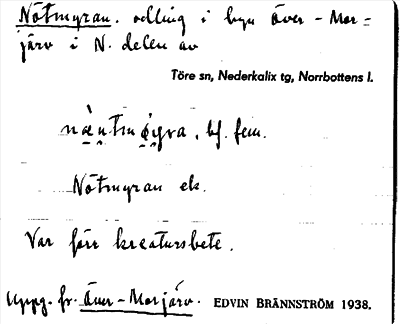 Nötmyran. odling i byn Över-Mor=
järv i N. delen av
Töre sn, Nederkalix tg, Norrbottens l.
bf. fem.
Nötmyran ek.
Var förr kreatursbete.
Uppg. fr. Över-Morjärv. EDVIN BRÄNNSTRÖM 1938.